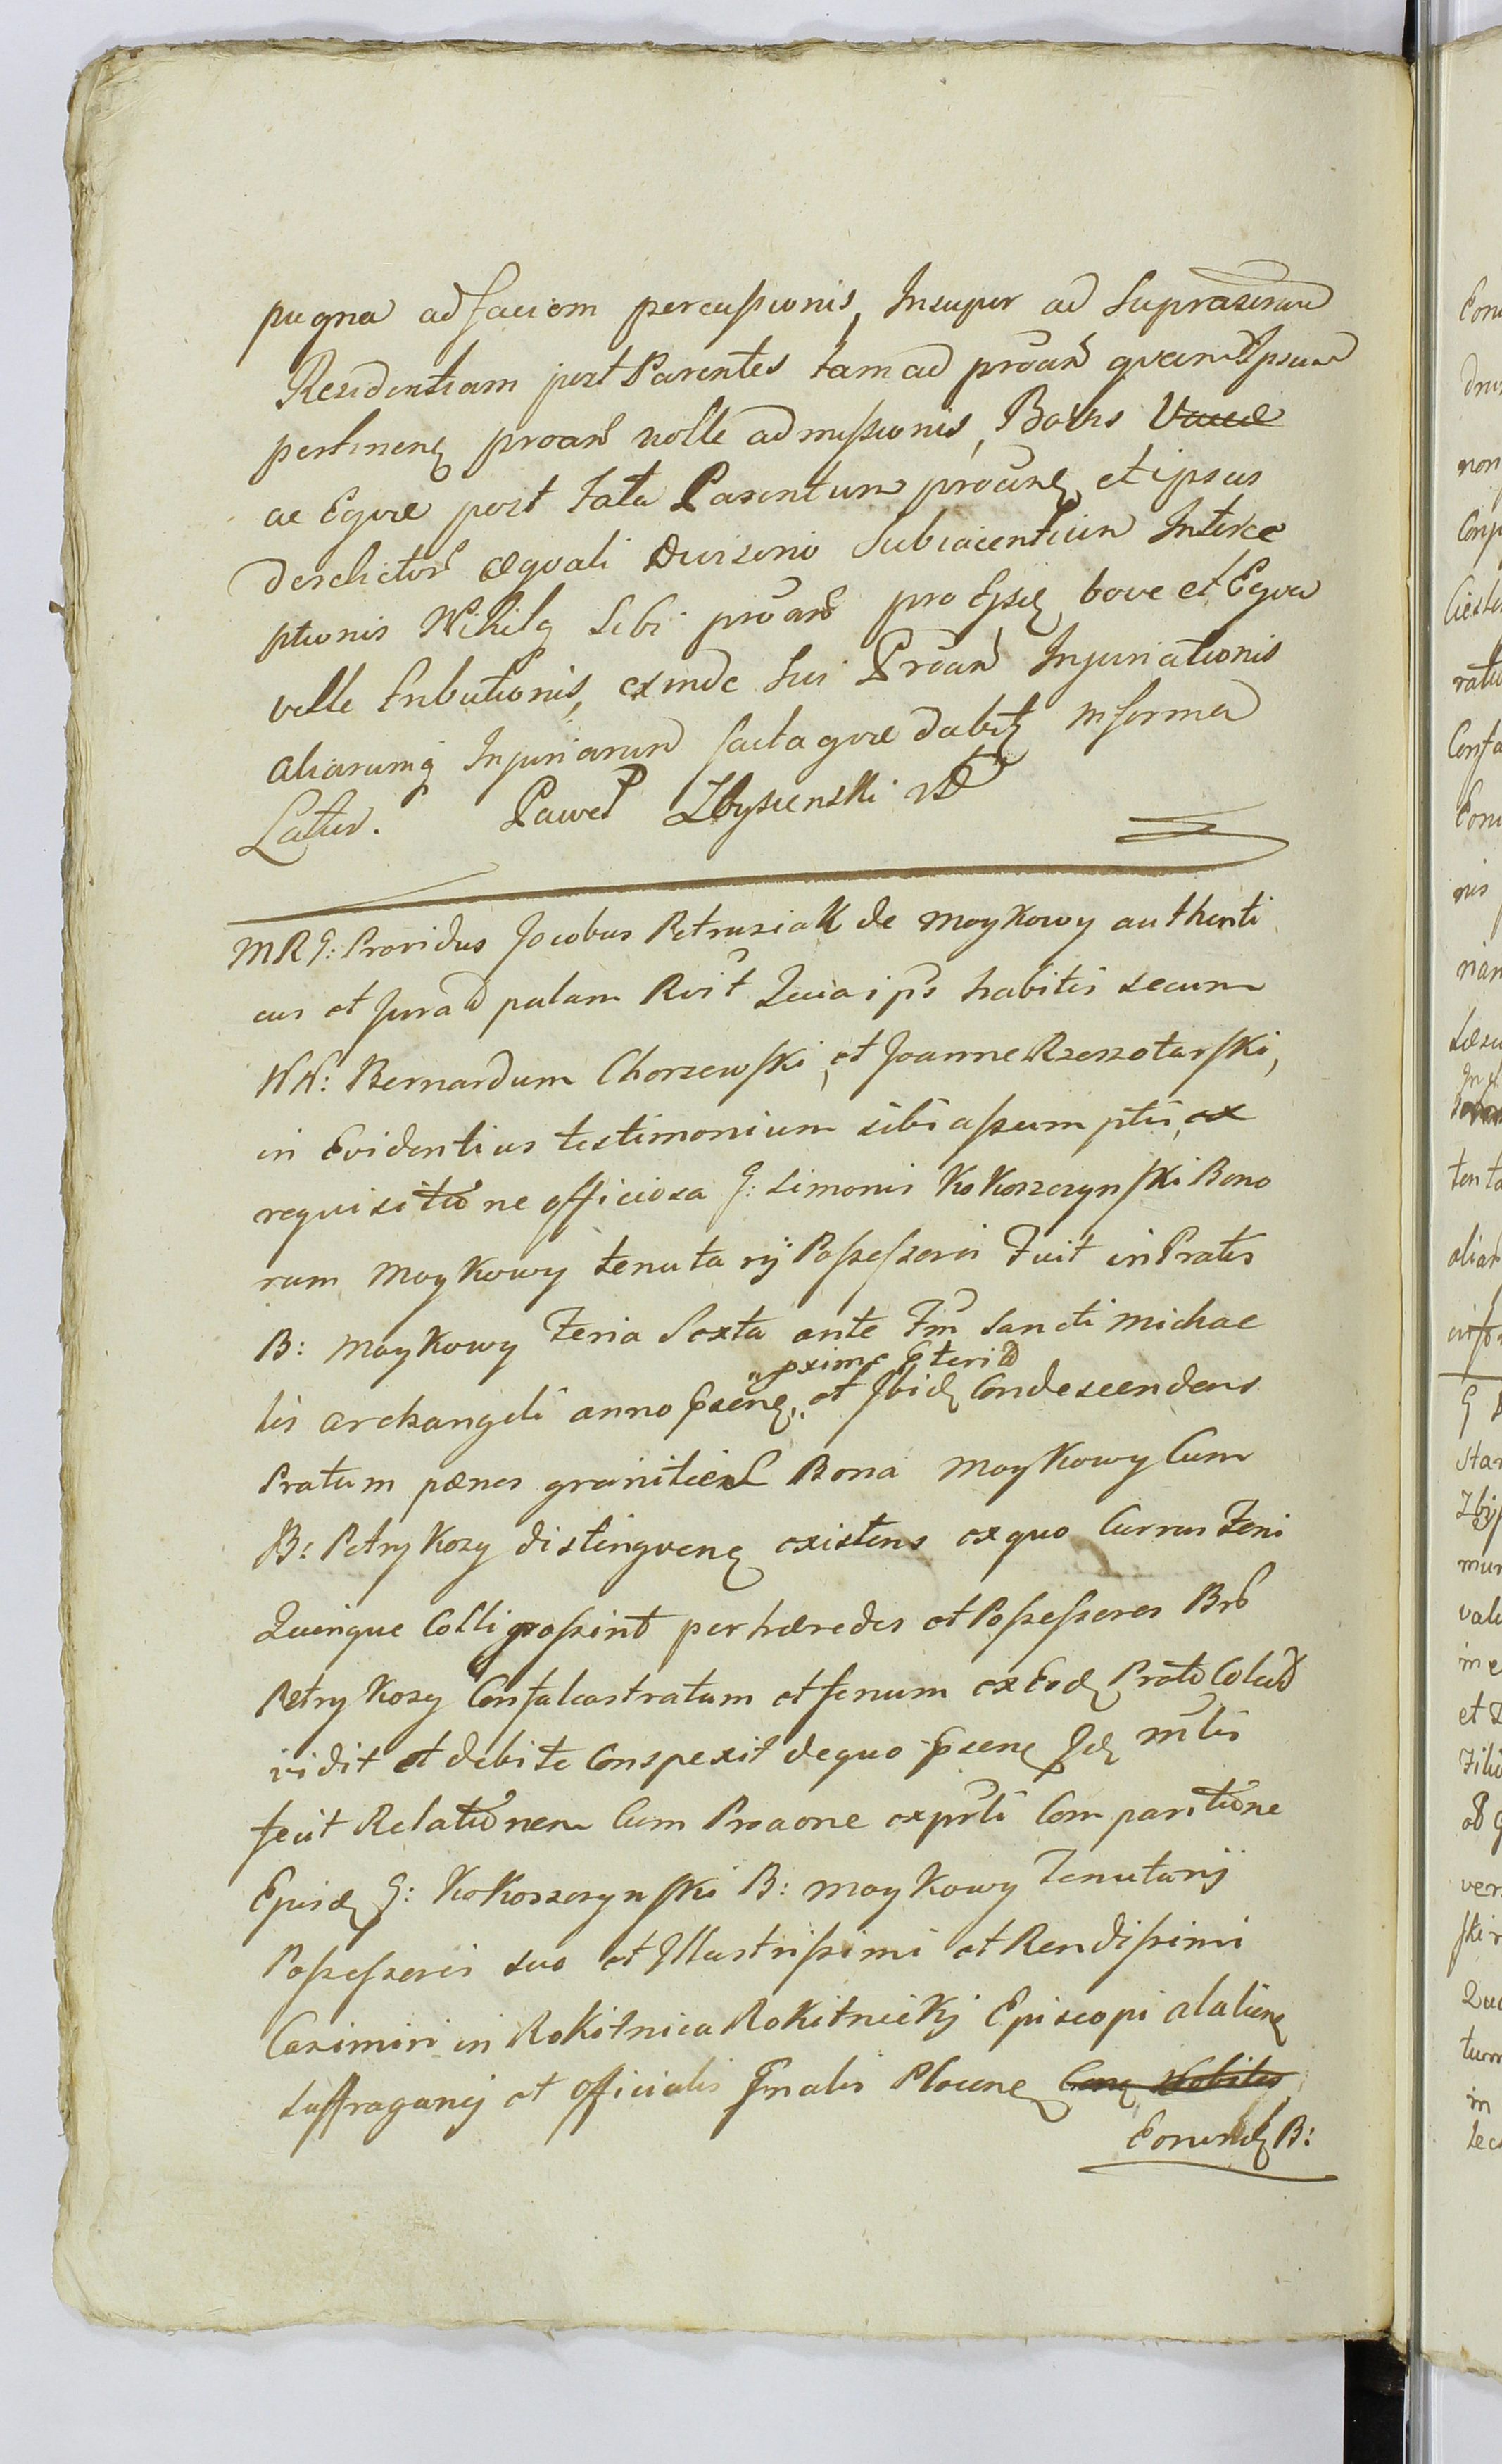 pugna ad faciem percussionis, Insuper ad Suprascram
Residentiam post Parentes tam ad proan quam Ipsum
pertinen proan nolle admissionis, Bovis Vaccæ
ac Equæ post fata Parentum proann et ipsius
derelictor æquali divisioni Subiacentium Interce
ptionis Nihilq Sibi proan pro Ejsd bove et Equa
velle tributionis, exinde Sui Proan Injuriationis
aliarumq Injuriarum facta quæ dabit in forma
Latius. Paweł Zbysienski
MRG: Providus Jacobus Petrusiak de Maykowy authenti
cus et Jurad palam Rvit Quia ips habitis secum
NN: Bernardum Chorzewski, et Joanne Rzeszotarski,
in Evidentius testimonium sibi assumptis, ex
requisitione officiosa G: Simonis Kokoszczynski Bono
rum Maykowy tenutarij Possessoris Fuit in Pratis
B: Maykowy Feria Sexta ante Fm Sancti Michae
lis Archangeli anno Præsen, et Ibid Condescendens
„pxime Eterit
Pratum pænes granities Bona Maykowy Cum
B: Petrykozy distinguen existens ex quo Currus Feni
Quinque Colligi possint per hæredes et Possessores Brb
Petrykozy Confalcastratum et fenum ex Eod Prato Colect
vidit et debite Conspexit de quo Præsen Id mlis
fecit Relationem Cum Proaone ex prti Comparitione
Ejusd G: Kokoszczynski B: Maykowy Tenutarij
Possessoris suo et Illustrissimi et Rendissimi
Casimiri in Rokitnica Rokitnickj Episcopi Alalien
Suffraganej et Officialis Gnalis Plocen Nobiles
Eorund B: